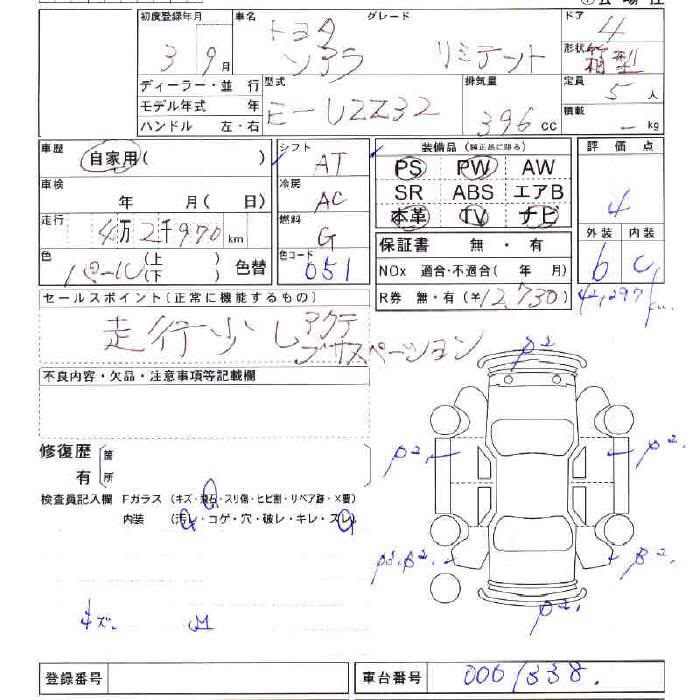 初度登録年月 車名 グレード ドア
トヨタ 4
3 9月 ソアラ リミテット 形状 箱型
ディーラー・並行 型式 排気量 定員 5人
モデル年式 年 E-UZZ32 396cc 積載 - kg
ハンドル 左・右
車歴 自家用( ) シフト AT 装備品(純正品に限る) 評価点
PS PW AW
車検 年 月(日) 冷房 AC SR ABS エアB 4
走行 4万2千970km 燃料 G 本革 TV ナビ 外装 内装
保証書 無・有
色 パール(上)(下) 色替 色コード 051 NOx 適合・不適合( 年 月) b C
セールスポイント(正常に機能するもの) R券 無・有(¥12,730) 42,297km
走行少し アクテ
ブサスペーション
不良内容・欠品・注意事項等記載欄
β2
修復歴 箇 β2. β2.
有 所
検査員記入欄 Fガラス (キズ・飛石・スリ傷・ヒビ割・リペア跡・X要)
内装 (汚レ・コゲ・穴・破レ・キレ・スレ)
β2. β2.
キズ M β2.
登録番号 車台番号 0061338.